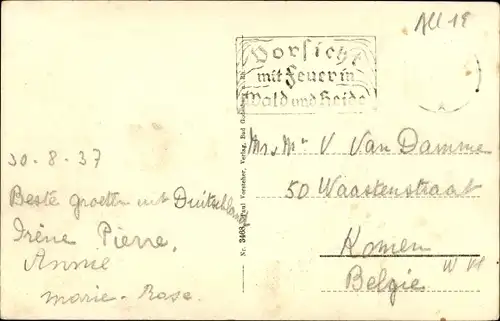 All 19
Vorsicht
mit Feuer in
Wald und Heide
30-8-37
Beste groeten uit Duitschland
Irène Pierre,
Annie
Marie-Rose.
Nr. 3468 Paul Vorsteher, Verlag, Bad Godesberg a. Rh.
Mr. & Mme V Van Damme
50 Waastenstraat
Komen
Belgie W Vl